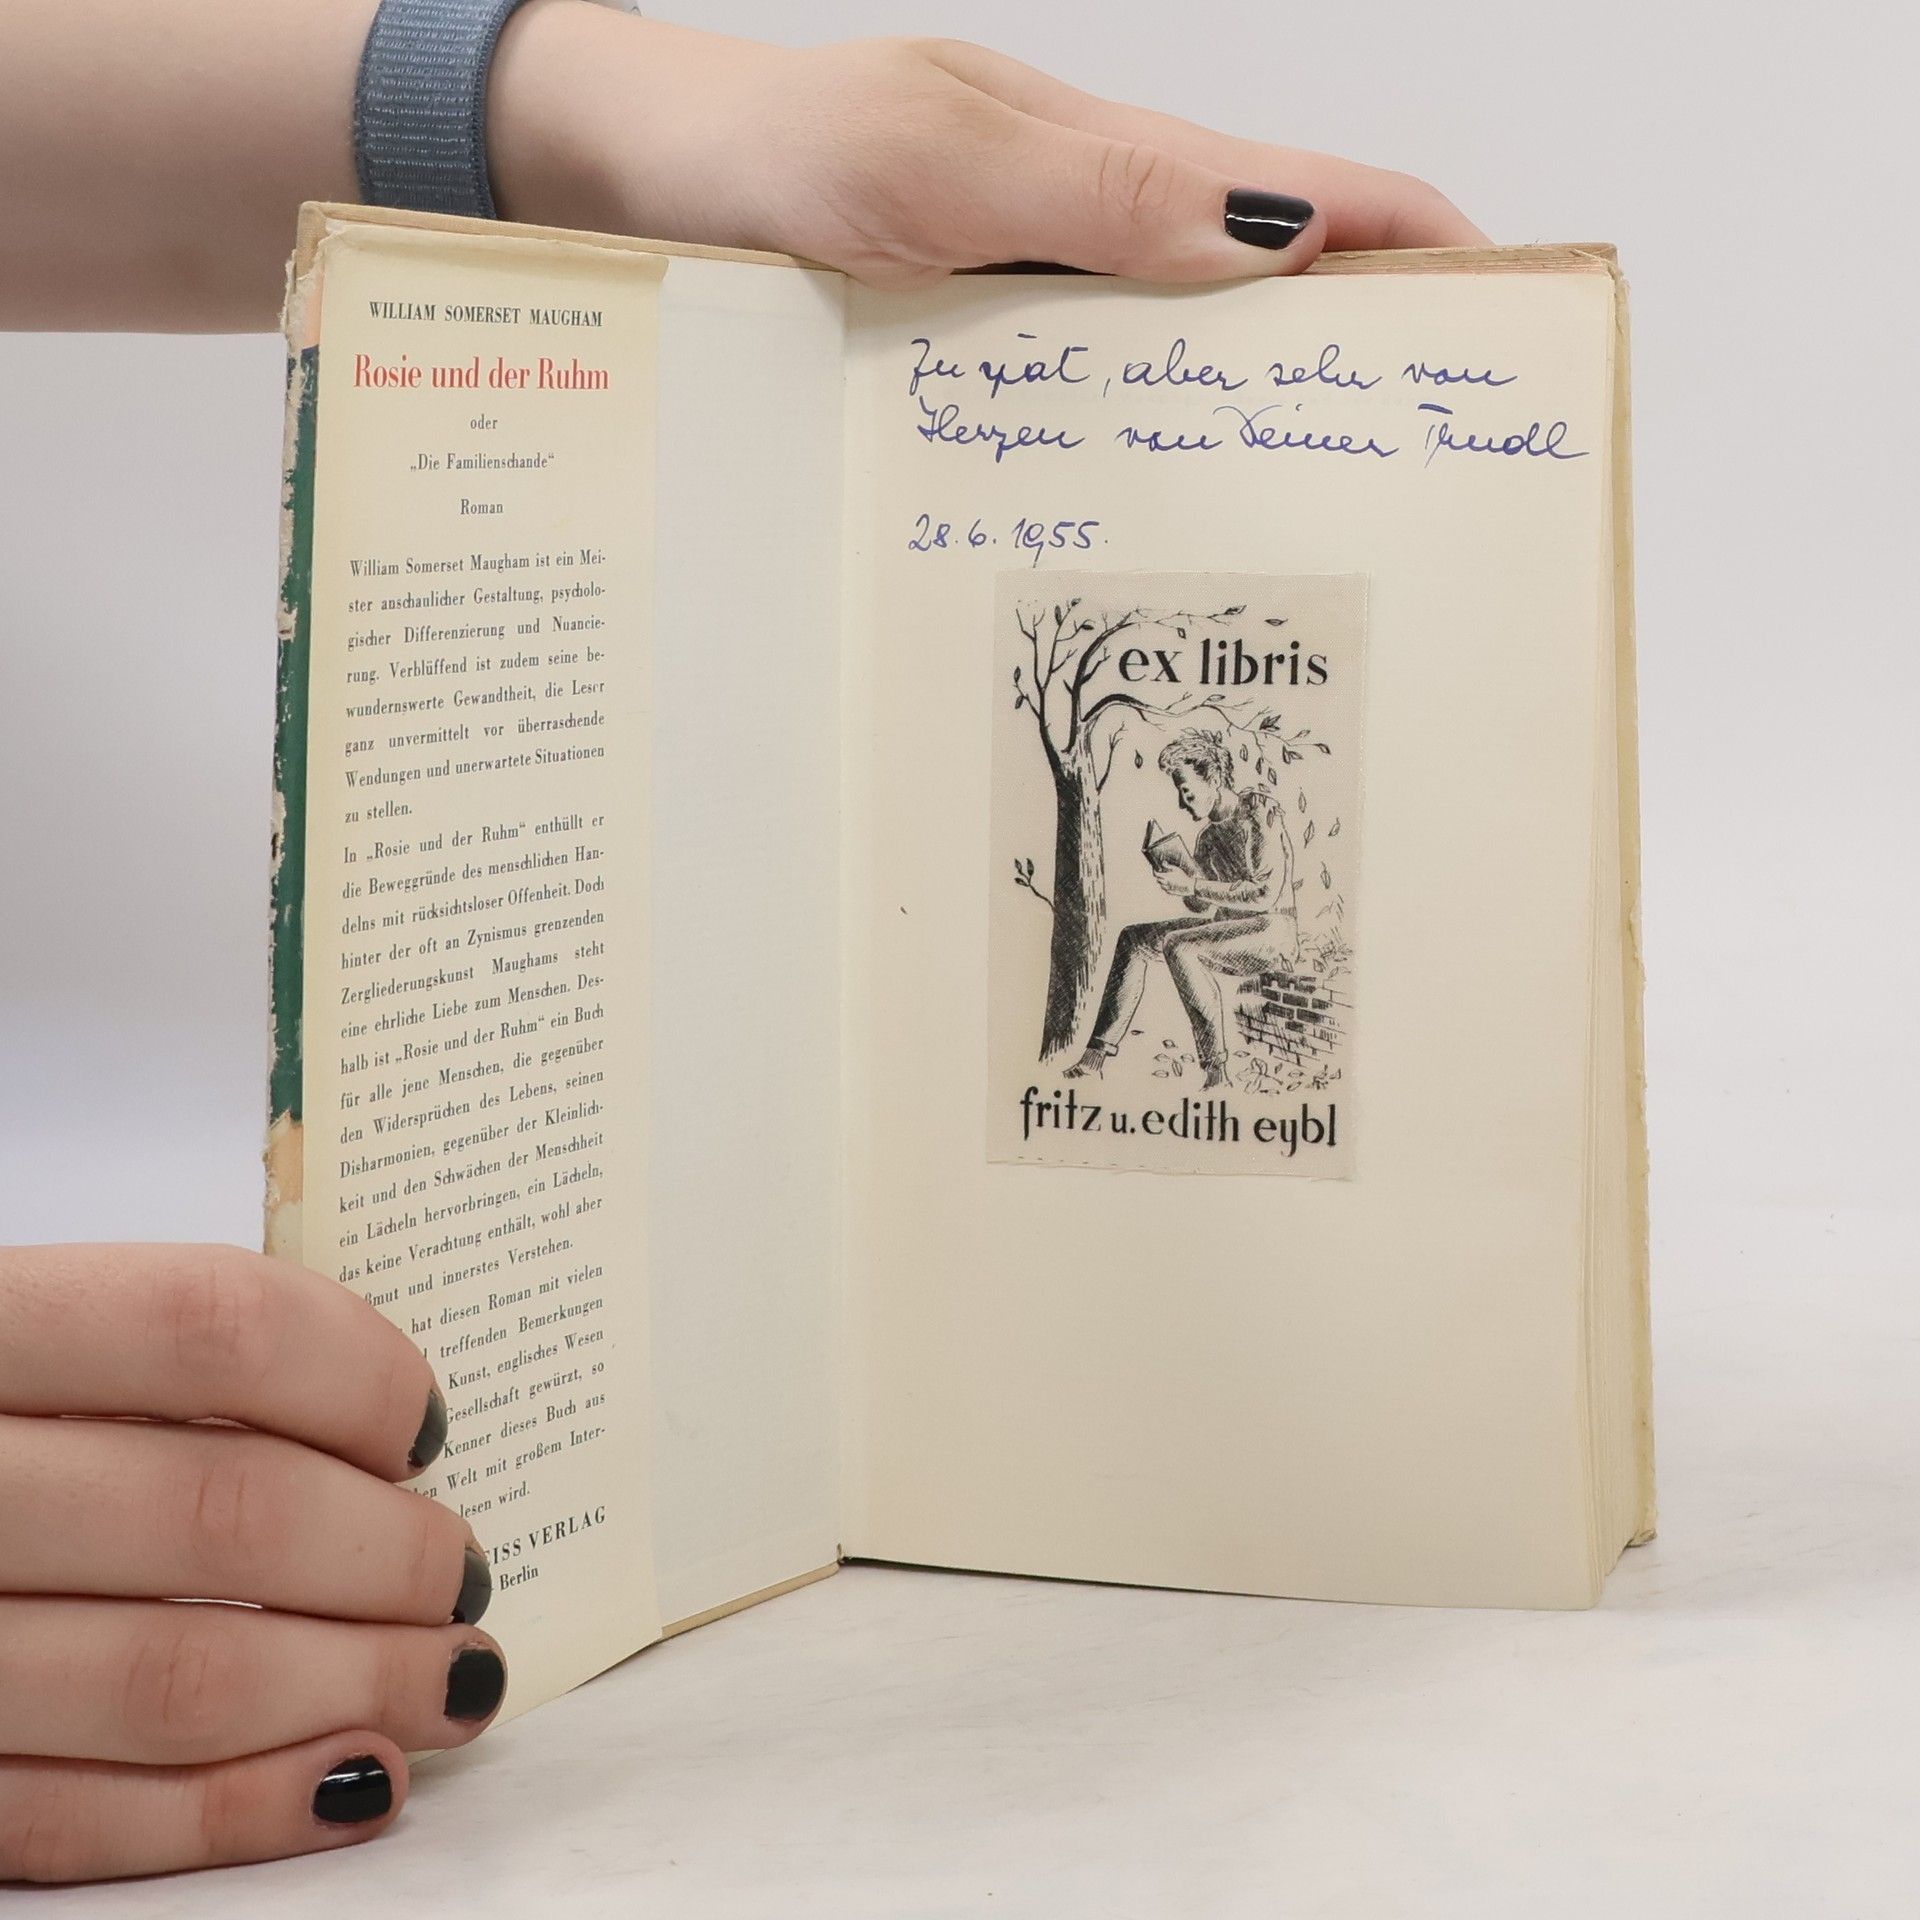 WILLIAM SOMERSET MAUGHAM
Rosie und der Ruhm
oder
„Die Familienschande“
Roman
William Somerset Maugham ist ein Mei-
ster anschaulicher Gestaltung, psycholo-
gischer Differenzierung und Nuancie-
rung. Verblüffend ist zudem seine be-
wundernswerte Gewandtheit, die Leser
ganz unvermittelt vor überraschende
Wendungen und unerwartete Situationen
zu stellen.
In „Rosie und der Ruhm“ enthüllt er
die Beweggründe des menschlichen Han-
delns mit rücksichtsloser Offenheit. Doch
hinter der oft an Zynismus grenzenden
Zergliederungskunst Maughams steht
eine ehrliche Liebe zum Menschen. Des-
halb ist „Rosie und der Ruhm“ ein Buch
für alle jene Menschen, die gegenüber
den Widersprüchen des Lebens, seinen
Disharmonien, gegenüber der Kleinlich-
keit und den Schwächen der Menschheit
ein Lächeln hervorbringen, ein Lächeln,
das keine Verachtung enthält, wohl aber
ßmut und innerstes Verstehen.
hat diesen Roman mit vielen
treffenden Bemerkungen
Kunst, englisches Wesen
Gesellschaft gewürzt, so
Kenner dieses Buch aus
en Welt mit großem Inter-
lesen wird.
EISS VERLAG
Berlin
Zu spät, aber sehr von
Herzen von Deiner Trudl
28.6.1955.
ex libris
fritz u. edith eybl